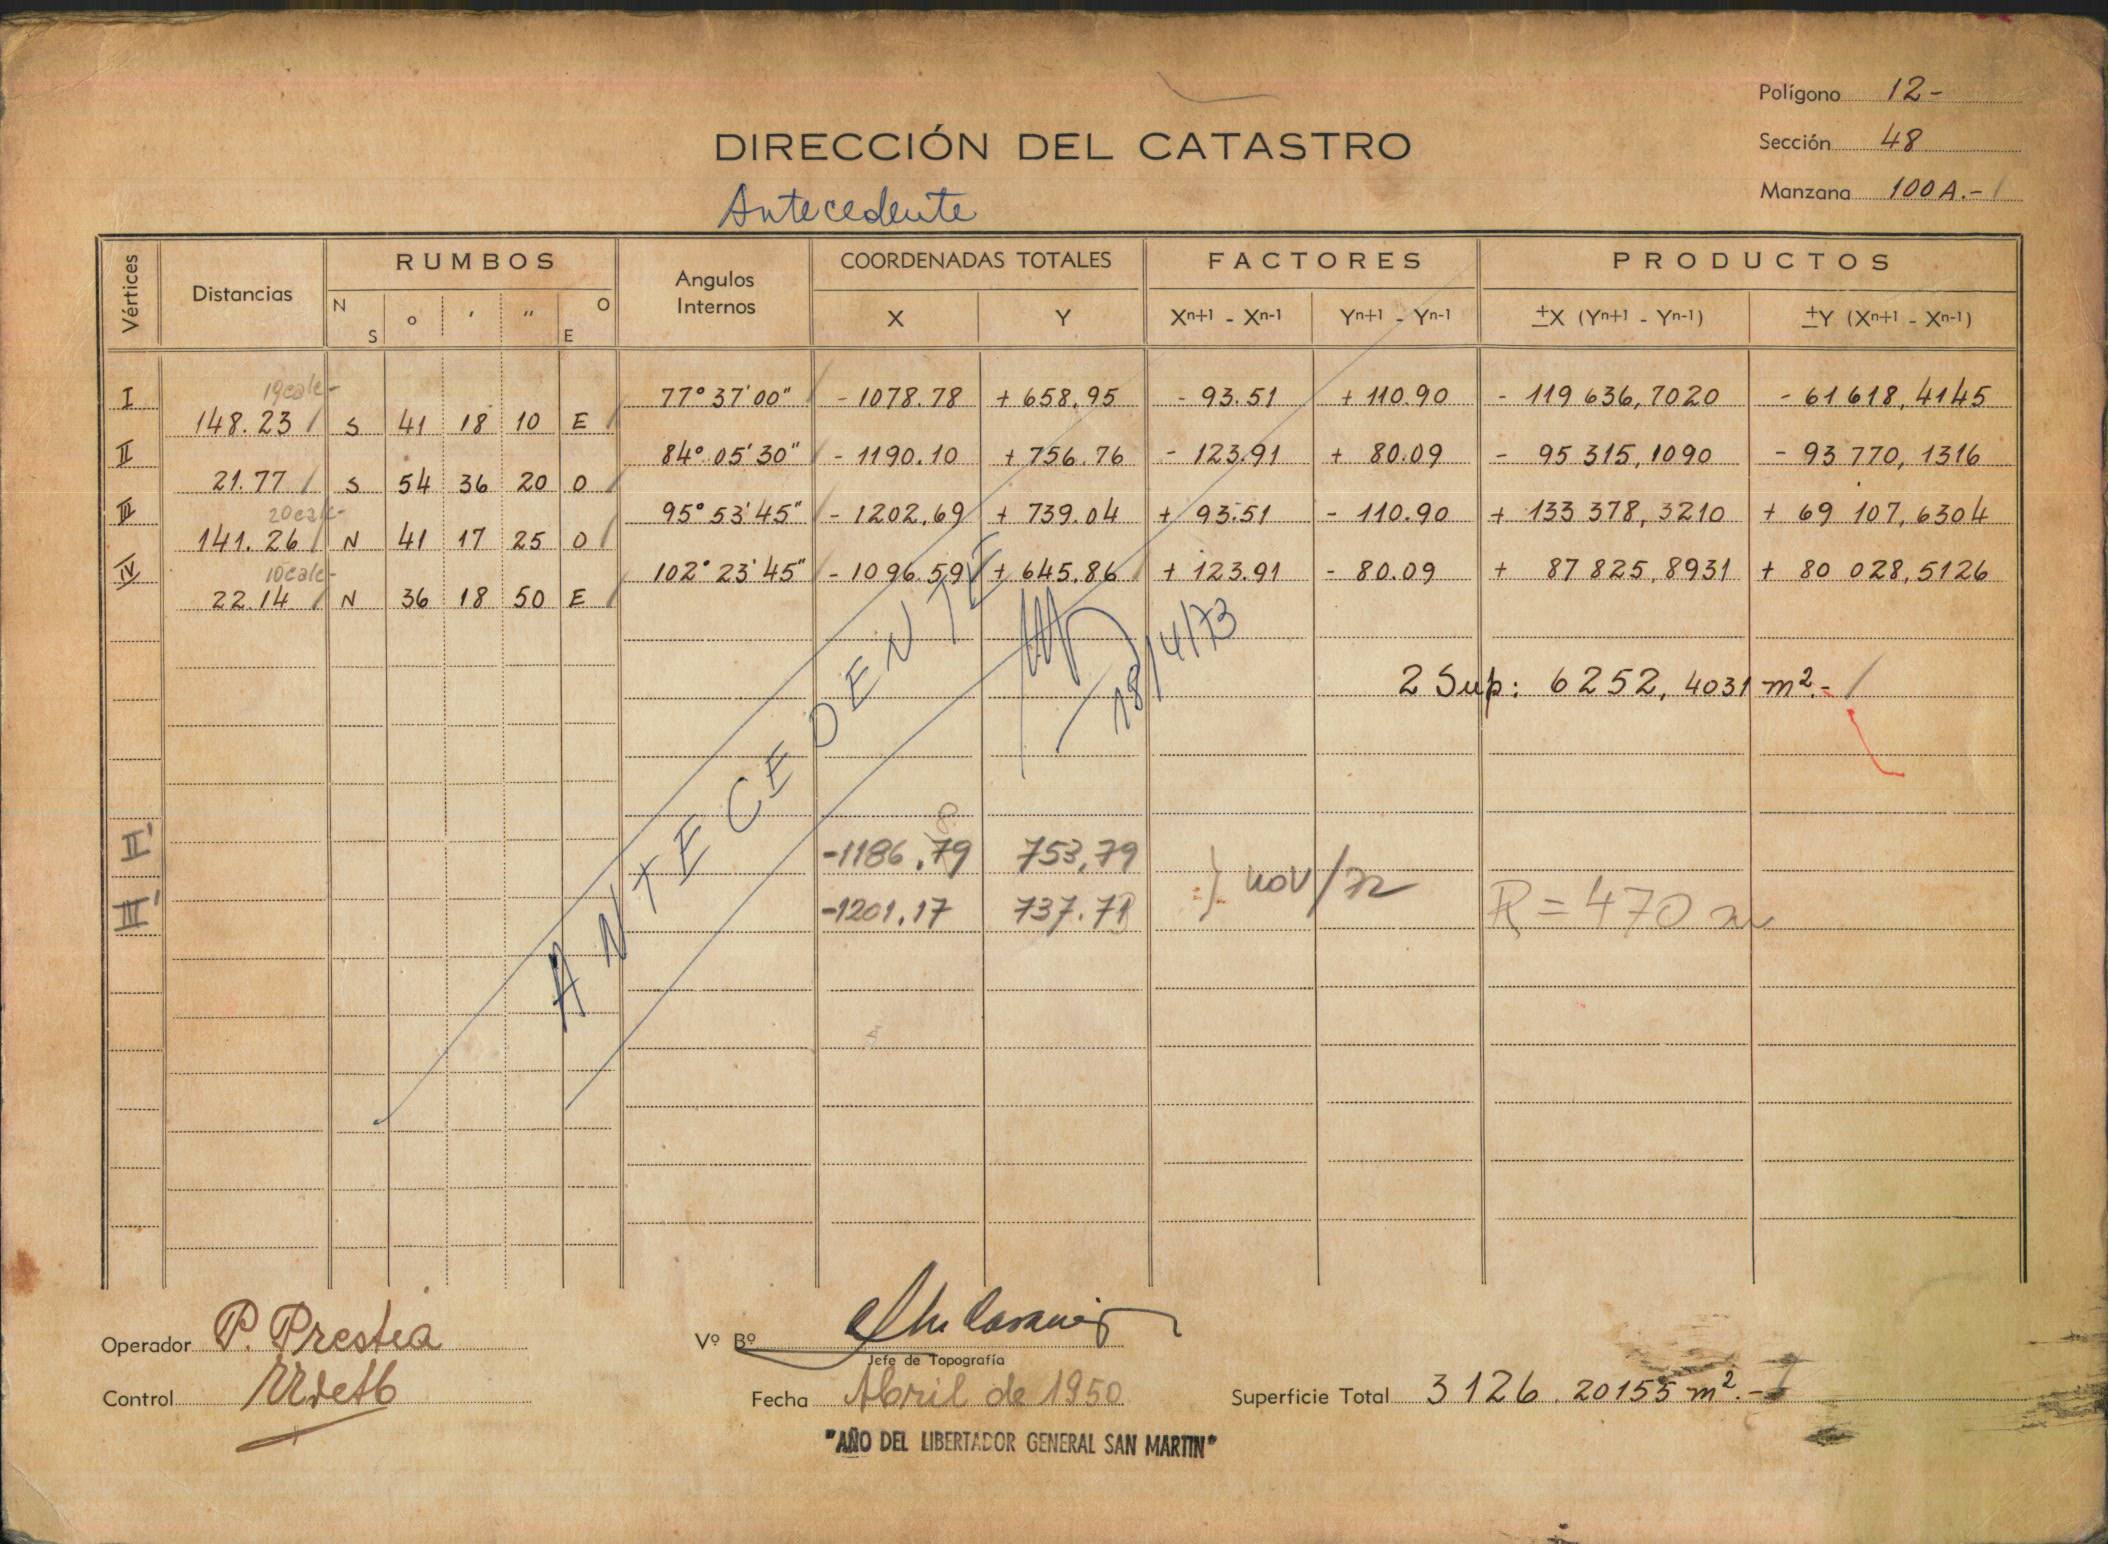 Polígono 12-
DIRECCIÓN DEL CATASTRO
Sección 48
Antecedente
Manzana 100A.-
Vértices
Distancias
RUMBOS
N S o ' " O E
Angulos Internos
COORDENADAS TOTALES
X Y
FACTORES
Xn+1 - Xn-1 Yn+1 - Yn-1
PRODUCTOS
±X (Yn+1 - Yn-1) ±Y (Xn+1 - Xn-1)
I 77° 37' 00" - 1078.78 + 658,95 - 93.51 + 110.90 - 119 636,7020 - 61 618,4145
148.23 S 41 18 10 E
II 84° 05' 30" - 1190.10 + 756.76 - 123.91 + 80.09 - 95 315,1090 - 93 770,1316
21.77 S 54 36 20 O
III 95° 53' 45" - 1202.69 + 739.04 + 93.51 - 110.90 + 133 378,3210 + 69 107,6304
141.26 N 41 17 25 O
IV 102° 23' 45" - 1096.59 + 645.86 + 123.91 - 80.09 + 87 825,8931 + 80 028,5126
22.14 N 36 18 50 E
ANTECEDENTE
18/4/73
2 Sup: 6252,4031 m².-
II' -1186.79 753,79
nov/72
III' -1201.17 737.71
R = 470 m
Operador P. Prestia
Vº Bº
Jefe de Topografía
Control
Fecha Abril de 1950
Superficie Total 3126.20155 m².-
"AÑO DEL LIBERTADOR GENERAL SAN MARTIN"